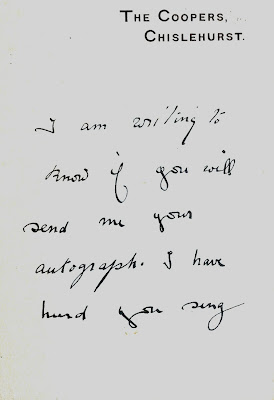 THE COOPERS,
CHISLEHURST.
I am writing to
know if you will
send me your
autograph. I have
hurd you sing